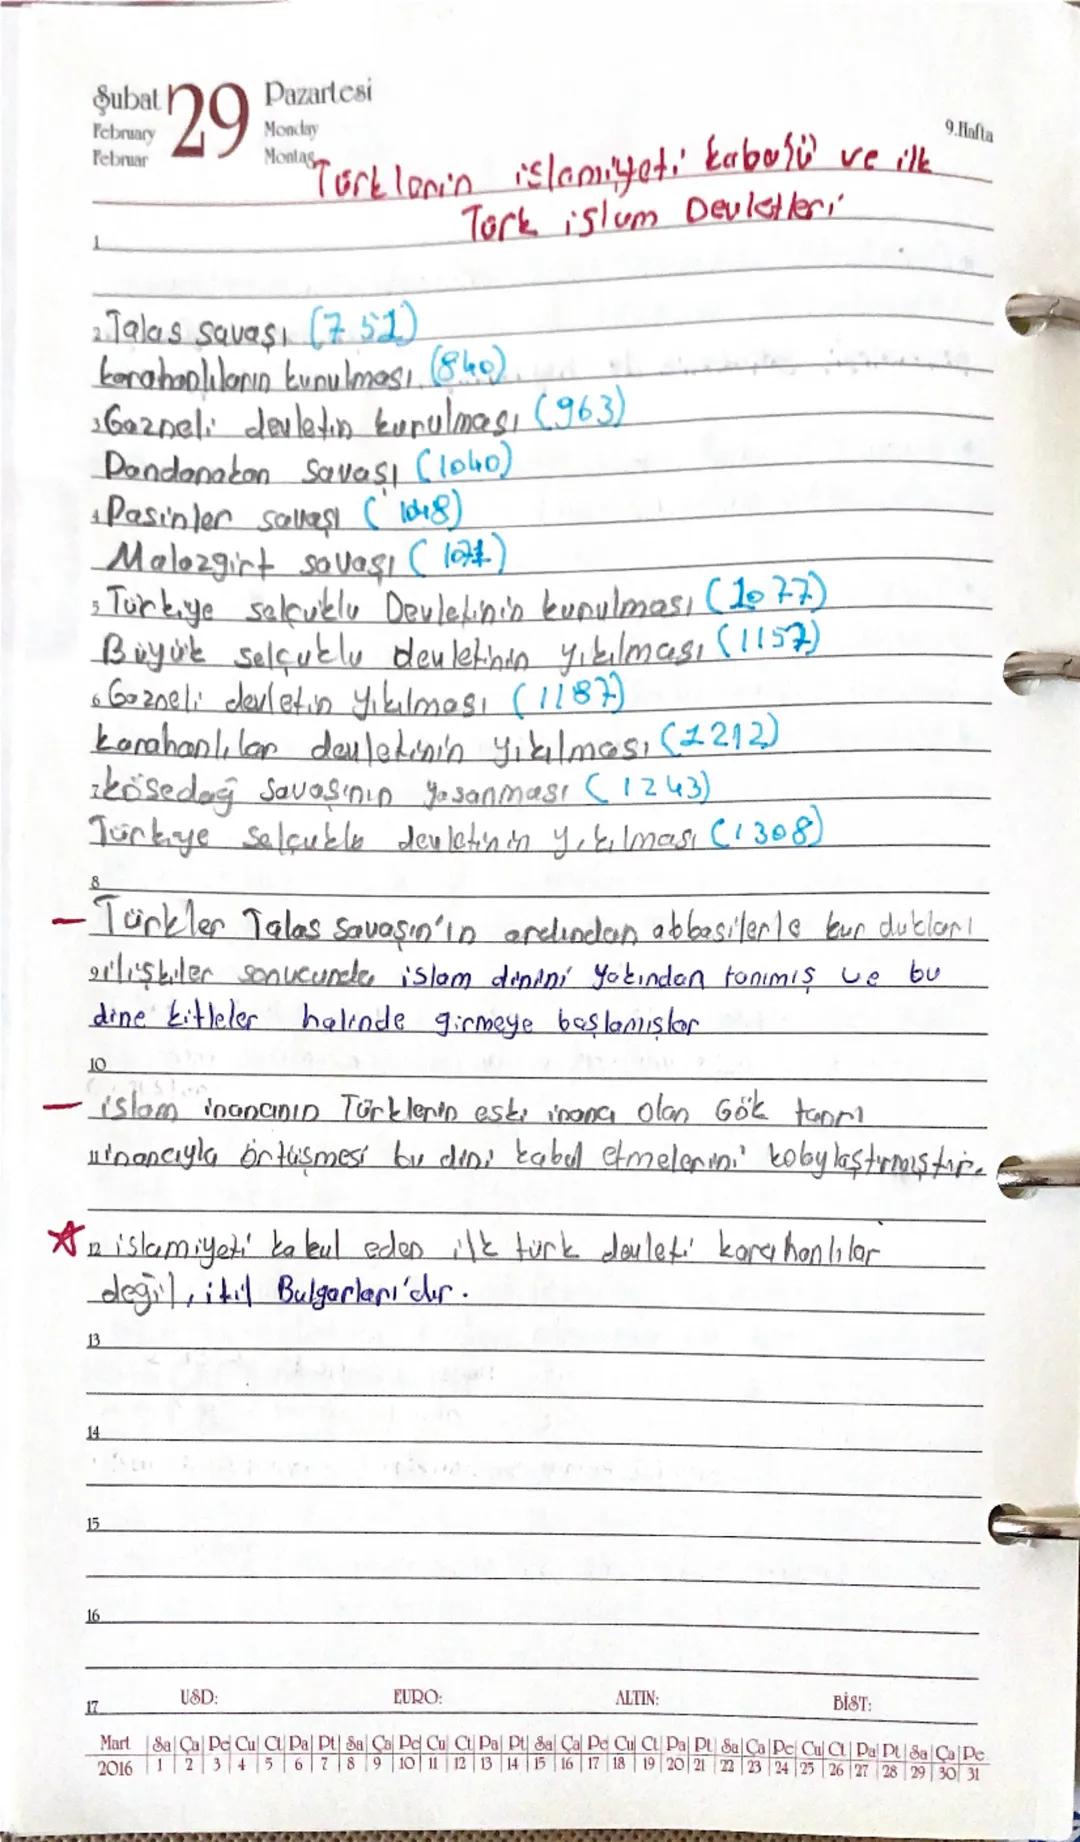 Şubat 29 Pazartesi
February Monday
Februar Montag
9.Hafta
Türklerin islamiyeti kabulü ve ilk
Türk islam Devletleri
1
2 Talas savaşı (751)
karahanlıların kurulması (840)
3 Gazneli devletin kurulması (963)
Dandanakan Savaşı (1040)
4 Pasinler savaşı (1048)
Malazgirt savaşı (1071)
5 Türkiye selçuklu Devletinin kurulması (1077)
Büyük selçuklu devletinin yıkılması (1157)
6 Gazneli devletin yıkılması (1187)
karahanlılar devletinin yıkılması (1212)
7 kösedağ savaşının yaşanması (1243)
Türkiye Selçuklu devletinin yıkılması (1308)
8
- Türkler Talas Savaşın'ın ardından abbasilerle kurdukları
9 ilişkiler sonucunda islam dinini yakından tanımış ve bu
dine kitleler halinde girmeye başlamışlar
10
- islam inancının Türklerin eski inancı olan Gök tanrı
11 inancıyla örtüşmesi bu dini kabul etmelerini kolaylaştırmıştır.
12 islamiyeti kabul eden ilk türk devleti karahanlılar
değil, itil Bulgarları'dır.
13
14
15
16
17 USD: EURO: ALTIN: BİST:
Mart Sa Ça Pe Cu Ct Pa Pt Sa Ça Pe Cu Ct Pa Pt Sa Ça Pe Cu Ct Pa Pt Sa Ça Pe Cu Ct Pa Pt Sa Ça Pe
2016 1 2 3 4 5 6 7 8 9 10 11 12 13 14 15 16 17 18 19 20 21 22 23 24 25 26 27 28 29 30 31